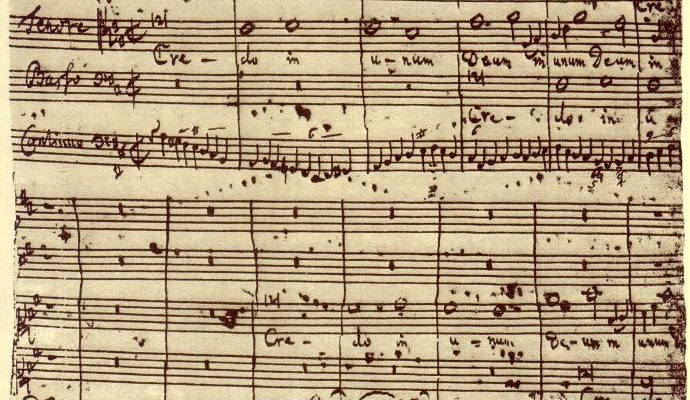 Cre
Tenore
Cre - do in u - num Deum in unum Deum in
Basso
Cre - do in u
Continuo
Cre - do in u - num De - um in unum